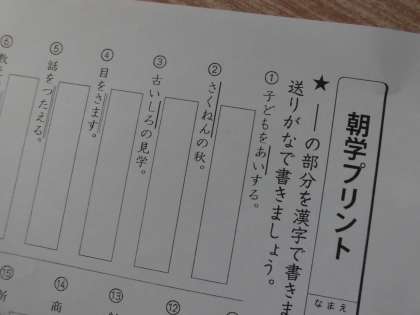 朝学プリント
なまえ
★ ――の部分を漢字で書きま
送りがなで書きましょう。
① 子どもをあいする。
② さくねんの秋。
③ 古いしろの見学。
④ 目をさます。
⑤ 話をつたえる。
⑥
⑫
⑬
⑭ 商
⑮